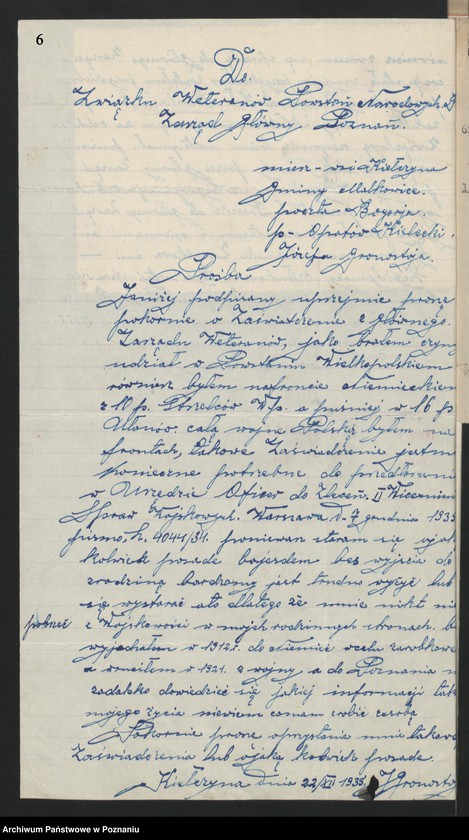 6
Do.
Związku Weteranów Powstań Narodowych
Zarząd Główny Poznań.
miesz-wsi Kiełczyna
Gminy Malkowice.
poczta Bogorja.
p- Opatów Kielecki.
Józefa Gronostaja.
Prośba
Janiżej podpisany uprzejmie proszę
pokornie o Zaświadczenie z głównego.
Zarządu Weteranów, jako brałem czyn
udział w Powstaniu Wielkopolskiem
również byłem nafroncie Niemieckiem
z 10 p. Strzelców Wp. a później w 16 p
Ułanów. całą wojnę Polską byłem na
frontach, takowe Zaświadczenie jest mi
konieczne potrzebne do przedłożenia
w Urzędzie Oficer do Zleceń. II Wicemin
Spraw Wojskowych. Warszawa d. 7 grudnia 1935
pismo. L. 4041/34. ponieważ staram się o jak
kolwiek posade bojestem bez wyjścia do
zrodziną bardzomy jest trudno wyżyć lub
się wystarać oto dlatego że mnie nikt nie
pobneć z Wojskowości w mojch rodzinnych stronach. b
wyjechałem w 1912r. do Niemiec wcelu zarobkowe
a wrociłem w 1921. z wojny, a do Poznania m
zadaleko dowiedzieć się jakiej informacji tak
mojego życia niewiem comam robić zesobą
Pokornie proszę oprzysłanie mnie takowe
Zaświadczenia lub ojaką kolwiek posade.
Kiełczyna dnia 22/XII 1935. J Gronostaj
Archiwum Państwowe w Poznaniu